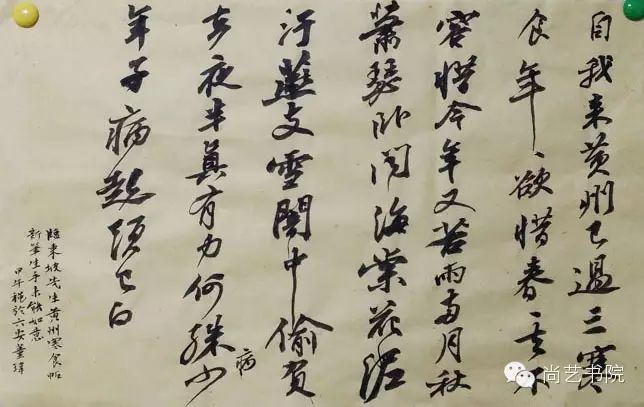 自我来黄州已過三寒
食年、欲惜春、去不
容惜今年又苦雨兩月秋
蕭瑟卧聞海棠花泥
汙燕支雪闇中偷負
去夜半真有力何殊少
病
年子病起頭已白
臨東坡先生黄州寒食帖
新筆生手未能如意
甲午於六安董
尚艺书院